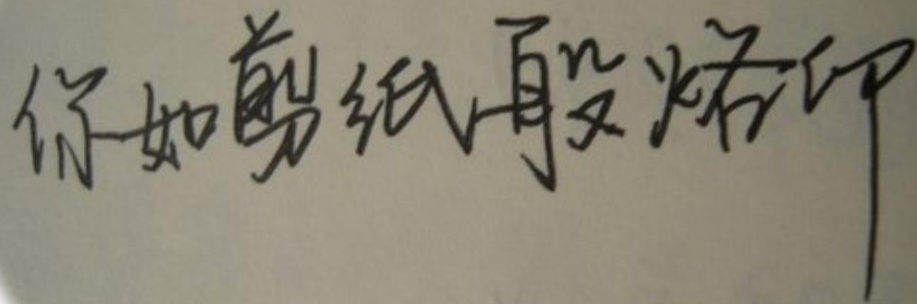 你如剪纸般烙印